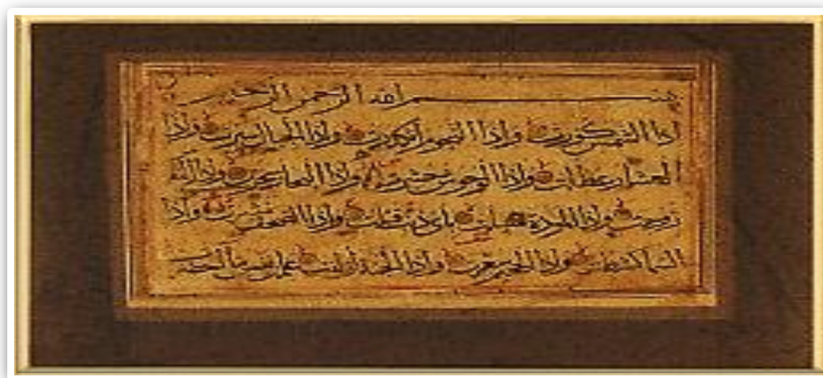 بسم الله الرحمن الرحيم
اذا الشمس كورت واذا النجوم انكدرت واذا الجبال سيرت واذا
العشار عطلت واذا الوحوش حشرت واذا البحار سجرت واذا
زوجت واذا الموءدة سئلت باي ذنب قتلت واذا الصحف نشرت واذا
السماء كشطت واذا الجحيم سعرت واذا الجنة ازلفت علمت نفس ما احضرت